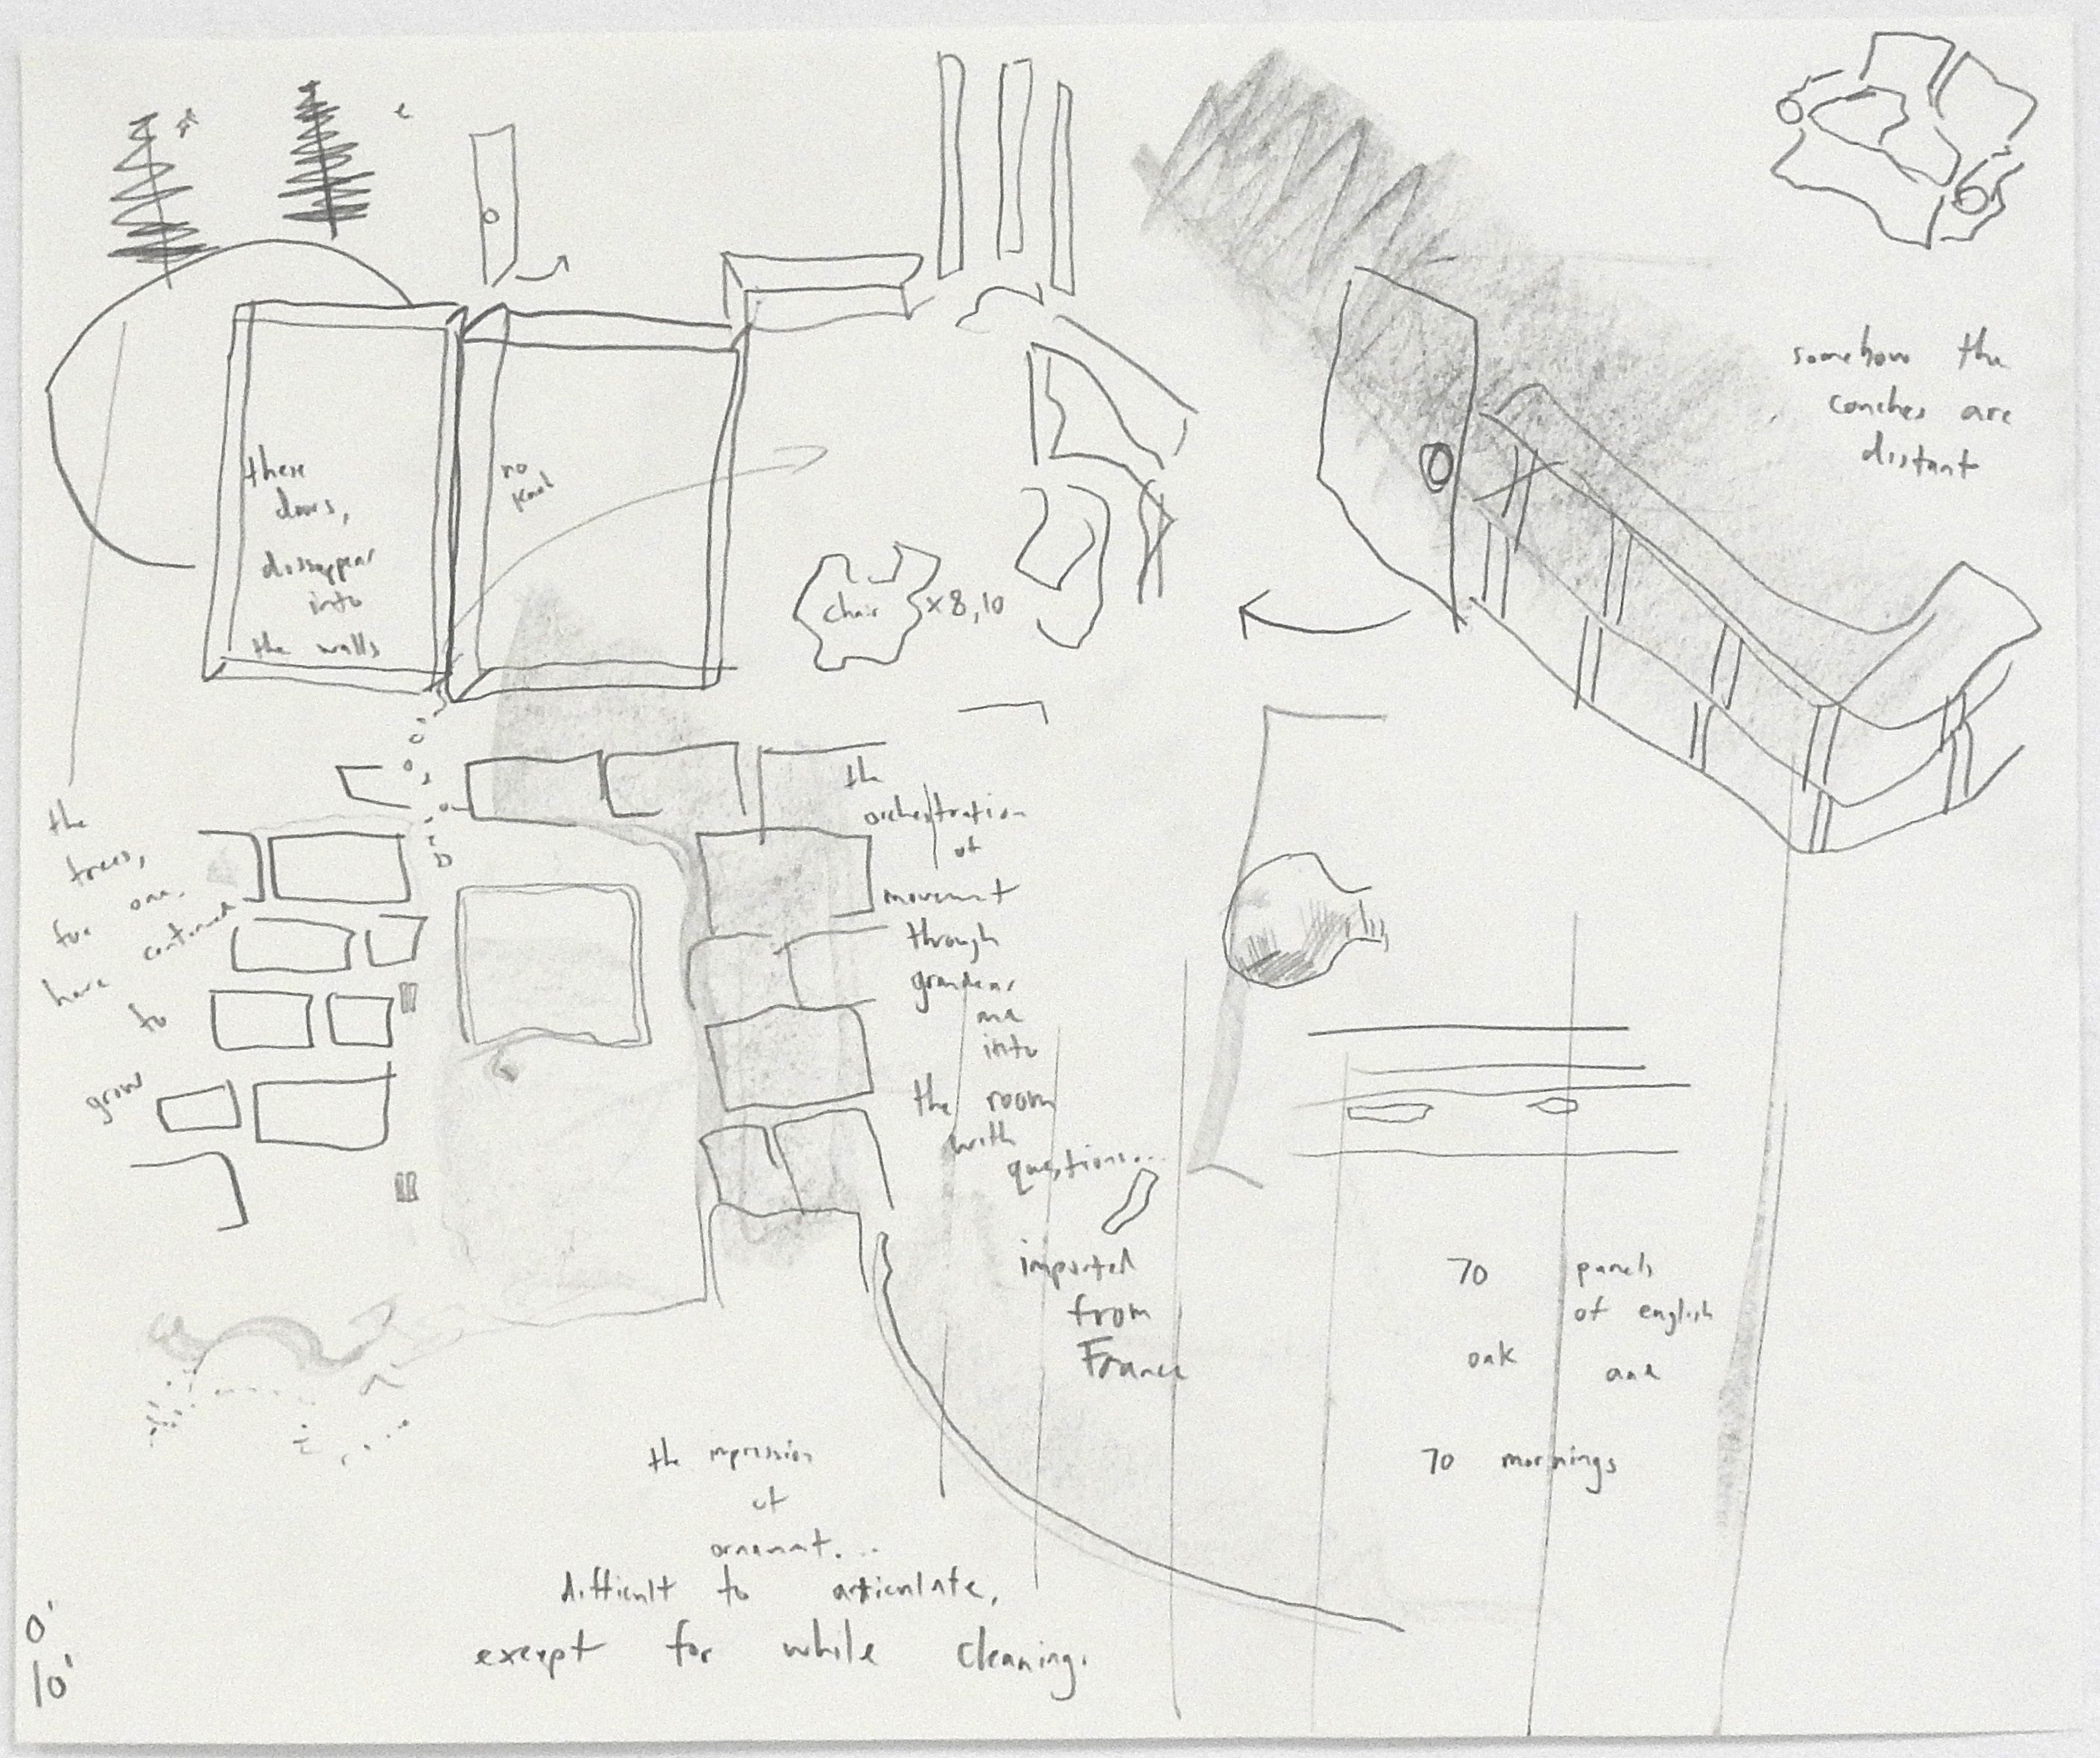 somehow the
couches are
distant
these
doors,
dissappear
into
the walls
no
knob
chair x 8,10
the
trees,
for one.
have continued
to
grow
the
orchestration
of
movement
through
grandeur
and
into
the room
with
questions...
imported
from
France
70 panels
of english
oak and
70 mornings
the impression
of
ornament...
difficult to articulate,
except for while cleaning.
0'
10'